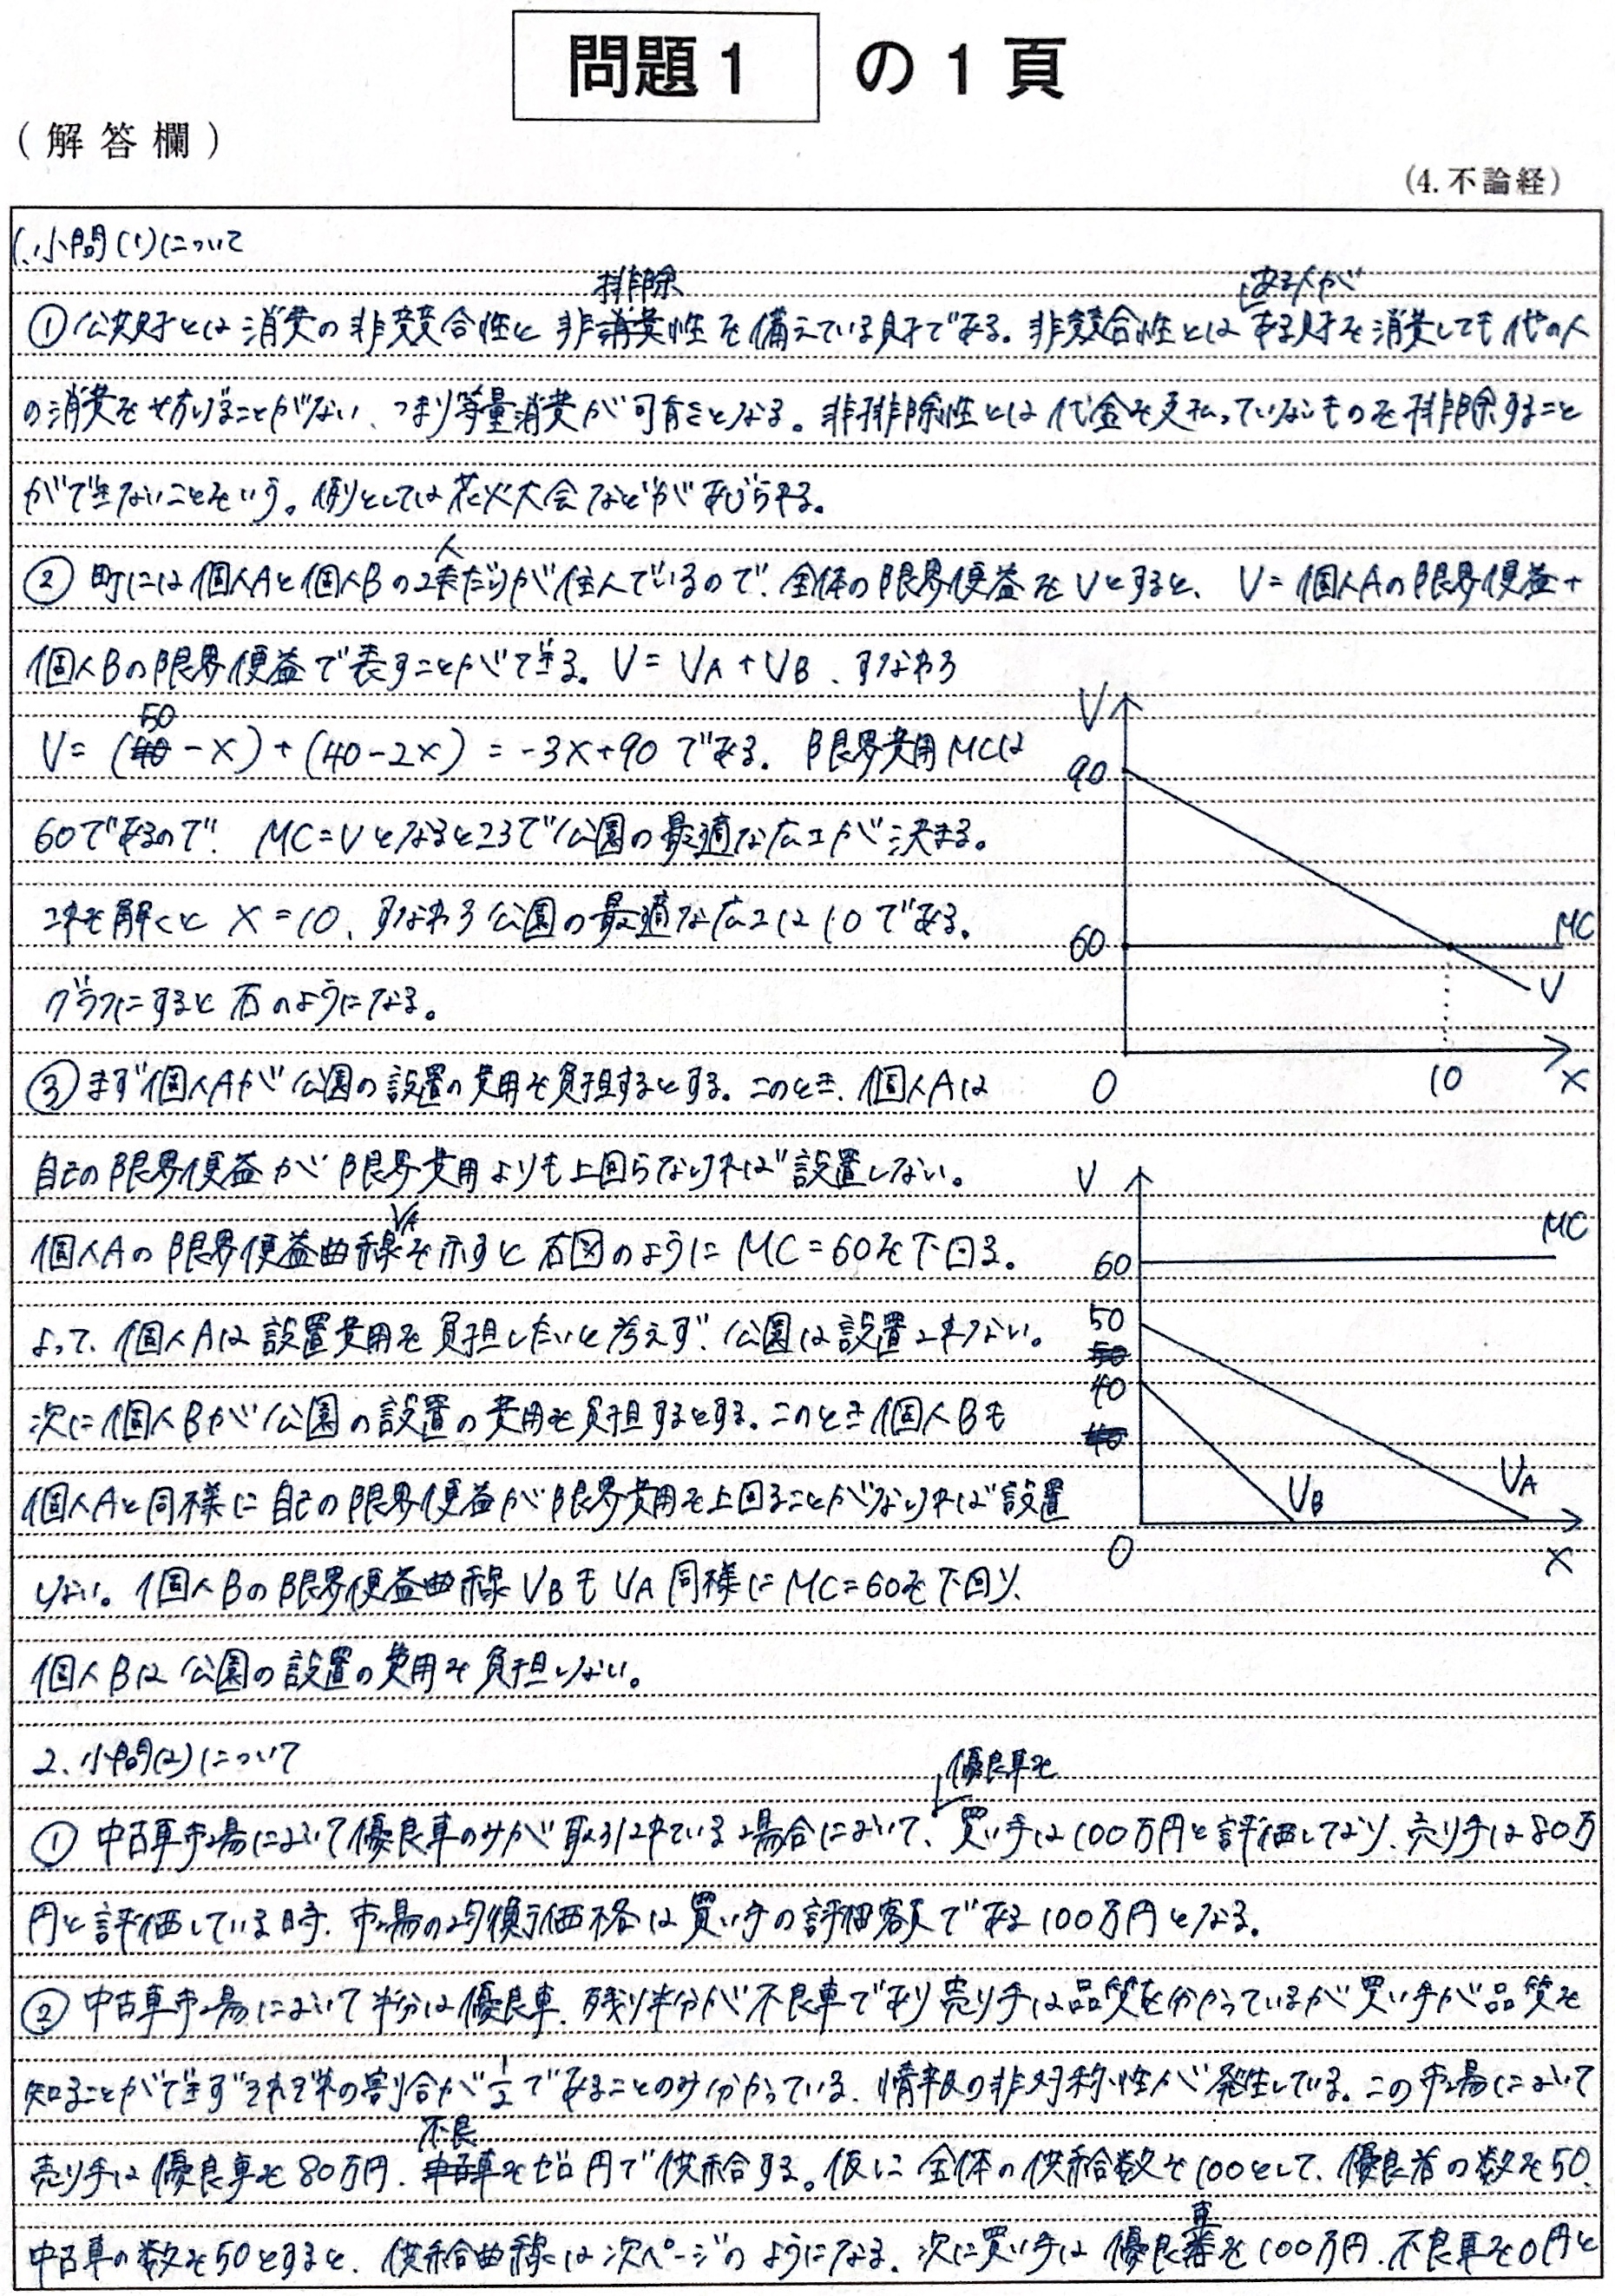 問題1 の1頁
(解答欄)
(4.不論経)
1.小問(1)について
排除 ある人が
①公共財とは消費の非競合性と非消費性を備えている財である。非競合性とはある財を消費しても他の人
の消費を妨げることがない、つまり等量消費が可能となる。非排除性とは代金を支払っていないものを排除すること
ができないことをいう。例としては花火大会などがあげられる。
人
② 町には個人Aと個人Bの2人だけが住んでいるので、全体の限界便益をVとすると、V=個人Aの限界便益+
個人Bの限界便益で表すことができる。V=VA+VB、すなわち
50
V=(40-x)+(40-2x)=-3x+90である。限界費用MCは
60であるので、MC=Vとなるところで公園の最適な広さが決まる。
これを解くとx=10、すなわち公園の最適な広さは10である。
グラフにすると右のようになる。
V
90
60
MC
V
0
10
x
③まず個人Aが公園の設置の費用を負担するとする。このとき、個人Aは
自己の限界便益が限界費用よりも上回らなければ設置しない。
VA
個人Aの限界便益曲線を示すと右図のようにMC=60を下回る。
よって、個人Aは設置費用を負担したいと考えず、公園は設置されない。
次に個人Bが公園の設置の費用を負担するとする。このとき個人Bも
個人Aと同様に自己の限界便益が限界費用を上回ることがなければ設置
しない。個人Bの限界便益曲線VBもVA同様にMC=60を下回り、
個人Bは公園の設置の費用を負担しない。
V
MC
60
50
50
40
40
VB
VA
0
x
2.小問(2)について
優良車を
① 中古車市場において優良車のみが取引されている場合において、買い手は100万円と評価しており、売り手は80万
円と評価している時、市場の均衡価格は買い手の評価額である100万円となる。
② 中古車市場において半分は優良車、残り半分が不良車であり売り手は品質を分かっているが買い手が品質を
知ることができずそれぞれの割合が1/2であることのみ分かっている、情報の非対称性が発生している。この市場において
不良
売り手は優良車を80万円、中古車をゼロ円で供給する。仮に全体の供給数を100として、優良者の数を50、
車
中古車の数を50とすると、供給曲線は次ページのようになる。次に買い手は優良者を100万円、不良車を0円と